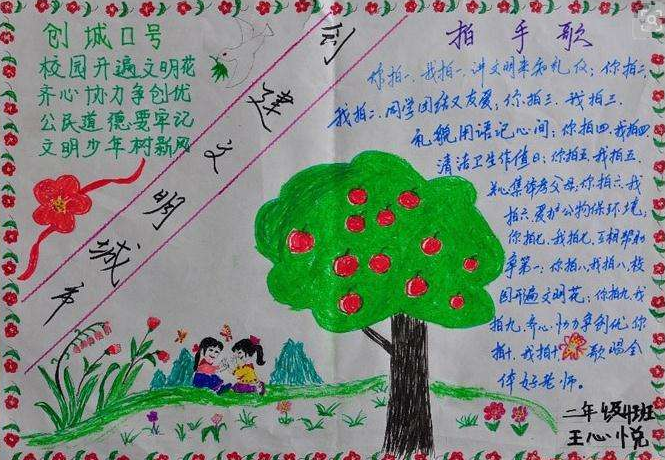 创城口号
校园开遍文明花
齐心协力争创优
公民道德要牢记
文明少年树新风
创建文明城市
拍手歌
你拍一、我拍一、讲文明来和礼仪；你拍二、
我拍二、同学团结又友爱；你拍三、我拍三、
礼貌用语记心间；你拍四、我拍四
清洁卫生作值日；你拍五、我拍五、
关心集体孝父母；你拍六、我
拍六、爱护公物保环境，
你拍七、我拍七、互相帮助
争第一；你拍八、我拍八、校
园开遍文明花；你拍九、我
拍九、齐心协力争创优你
拍十、我拍十、歌唱全
体好老师。
二年级班
王心悦